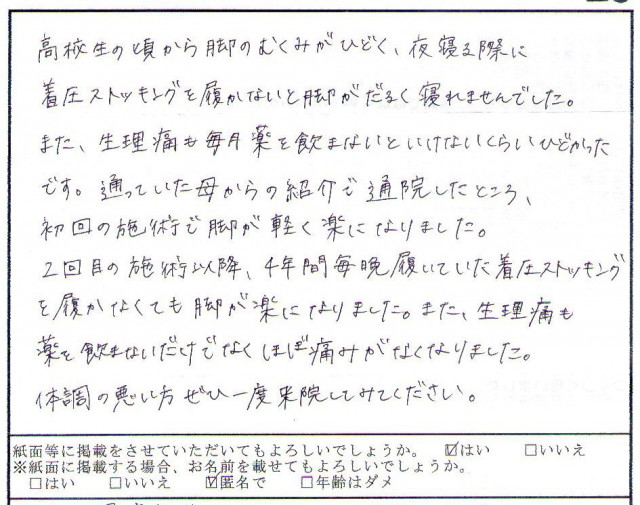 高校生の頃から脚のむくみがひどく、夜寝る際に
着圧ストッキングを履かないと脚がだるく寝れませんでした。
また、生理痛も毎月薬を飲まないといけないくらいひどかった
です。通っていた母からの紹介で通院したところ、
初回の施術で脚が軽く楽になりました。
2回目の施術以降、4年間毎晩履いていた着圧ストッキング
を履かなくても脚が楽になりました。また、生理痛も
薬を飲まないだけでなくほぼ痛みがなくなりました。
体調の悪い方ぜひ一度来院してみてください。
紙面等に掲載をさせていただいてもよろしいでしょうか。 ☑はい □いいえ
※紙面に掲載する場合、お名前を載せてもよろしいでしょうか。
□はい □いいえ ☑匿名で □年齢はダメ